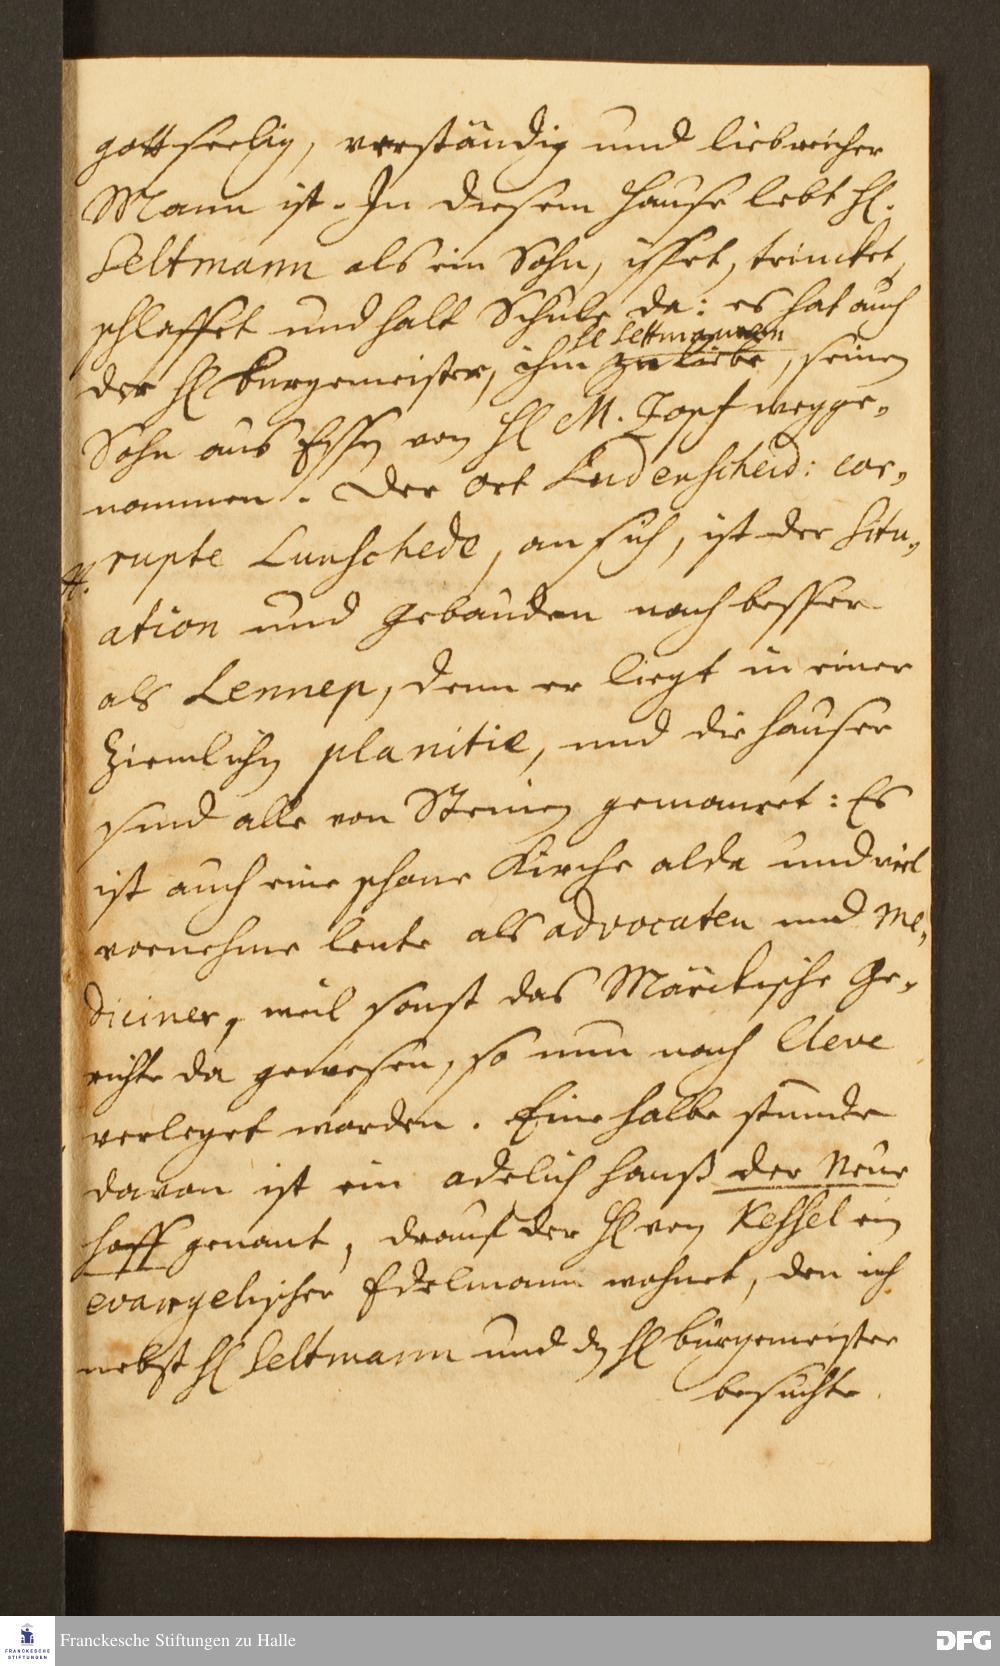 gottseelig, verständig und liebreicher
Mann ist. In diesem Hause lebt H.
Seltmann als ein Sohn, isset, trincket,
schlaffet und halt Schule da: es hat auch
H Seltmannen
der H Burgemeister, ihm zu liebe, seinen
Sohn aus Essen von H M. Zopf wegge-
nommen. Der Ort Ludenscheid: cor-
rupte Lunschede, an sich, ist der Situ-
ation und Gebauden nach besser
als Lennep, denn er liegt in einer
ziemlichen planitie, und die Hauser
sind alle von Steinen gemauret: Es
ist auch eine schone Kirche alda und viel
vornehme leute als advocaten und Me-
diciner, weil sonst das Märckische Ge-
richte da gewesen, so nun nach Cleve
verleget worden. Eine halbe stunde
davon ist ein adelich Hauß der Neue
Hoff genant, drauf der H von Kessel ein
evangelischer Edelmann wohnet, den ich
nebst H Seltmann und dem H bürgemeister
besuchte.
Franckesche Stiftungen zu Halle
FRANCKESCHE STIFTUNGEN
DFG